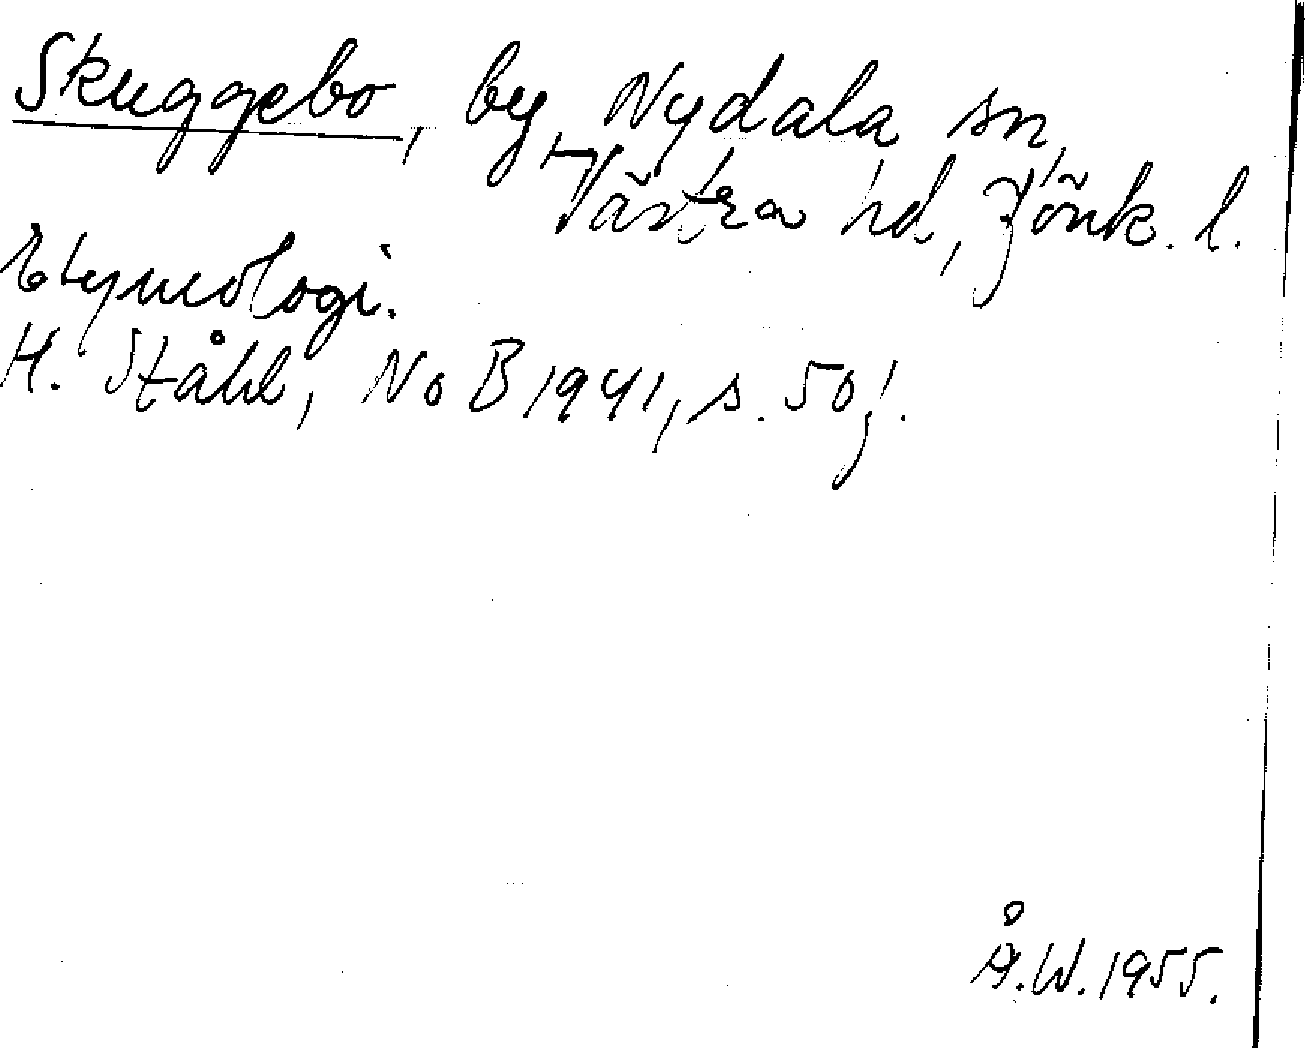 Skuggebo, by, Nydala sn,
Västra hd, Jönk. l.
Etymologi.
H. Ståhl, NoB 1941, s. 50f.
Å.W. 1955.